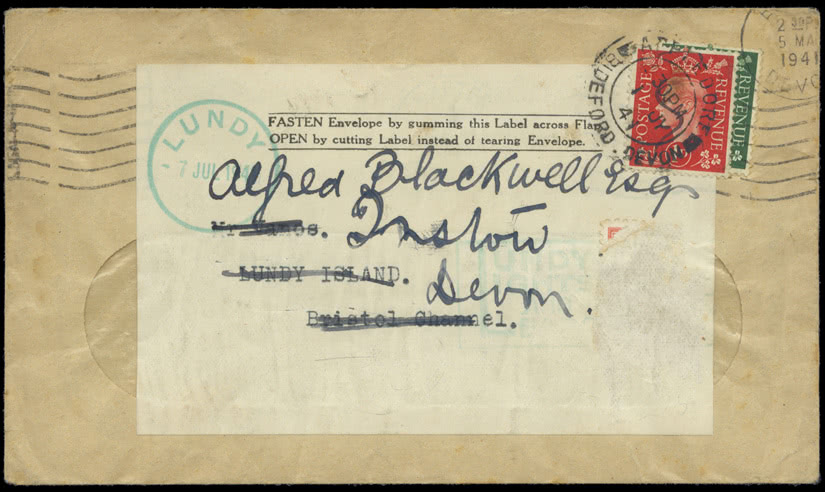 2 30 P
5 MA
1941
DEVO
APPLEDORE
BIDEFORD
DEVON
POSTAGE REVENUE
REVENUE
LUNDY
7 JUL 194
FASTEN Envelope by gumming this Label across Flap
OPEN by cutting Label instead of tearing Envelope.
Alfred Blackwell Esq
Instow
LUNDY ISLAND.
Devon.
Bristol Channel.
LUNDY